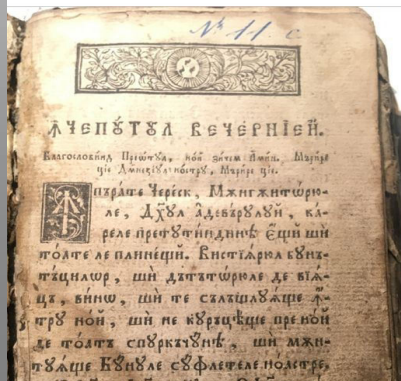 № 11 с
ꙞЧЕПꙊТꙊЛ ВЕЧЕ́РНЇЕЙ.
Благословинд Преѡтꙋл, ной зичем Амин, Мѣрире
ціе Дмнезеꙋл ностру, Мѣрире ціе.
Ꙟпърате Череск, Мѫнгѫитѡрю-
ле, Дх҃ꙋл Адевърꙋлꙋй, ка-
реле претꙋтиндинѣ є҆щй ши
тоате ле плинещй. Вистїярюл бꙋнъ-
тъцилѡр, шй дътътѡрюле де вїа-
цъ, вино, шй те сълъшлꙋѧще ꙟ-
трꙋ ной, шй не кꙋръцѣще пре ной
де тоатъ спꙋркъчꙋнѣ, шй мѫн-
тꙋѧще Бꙋнꙋле сꙋфлетеле ноастре,